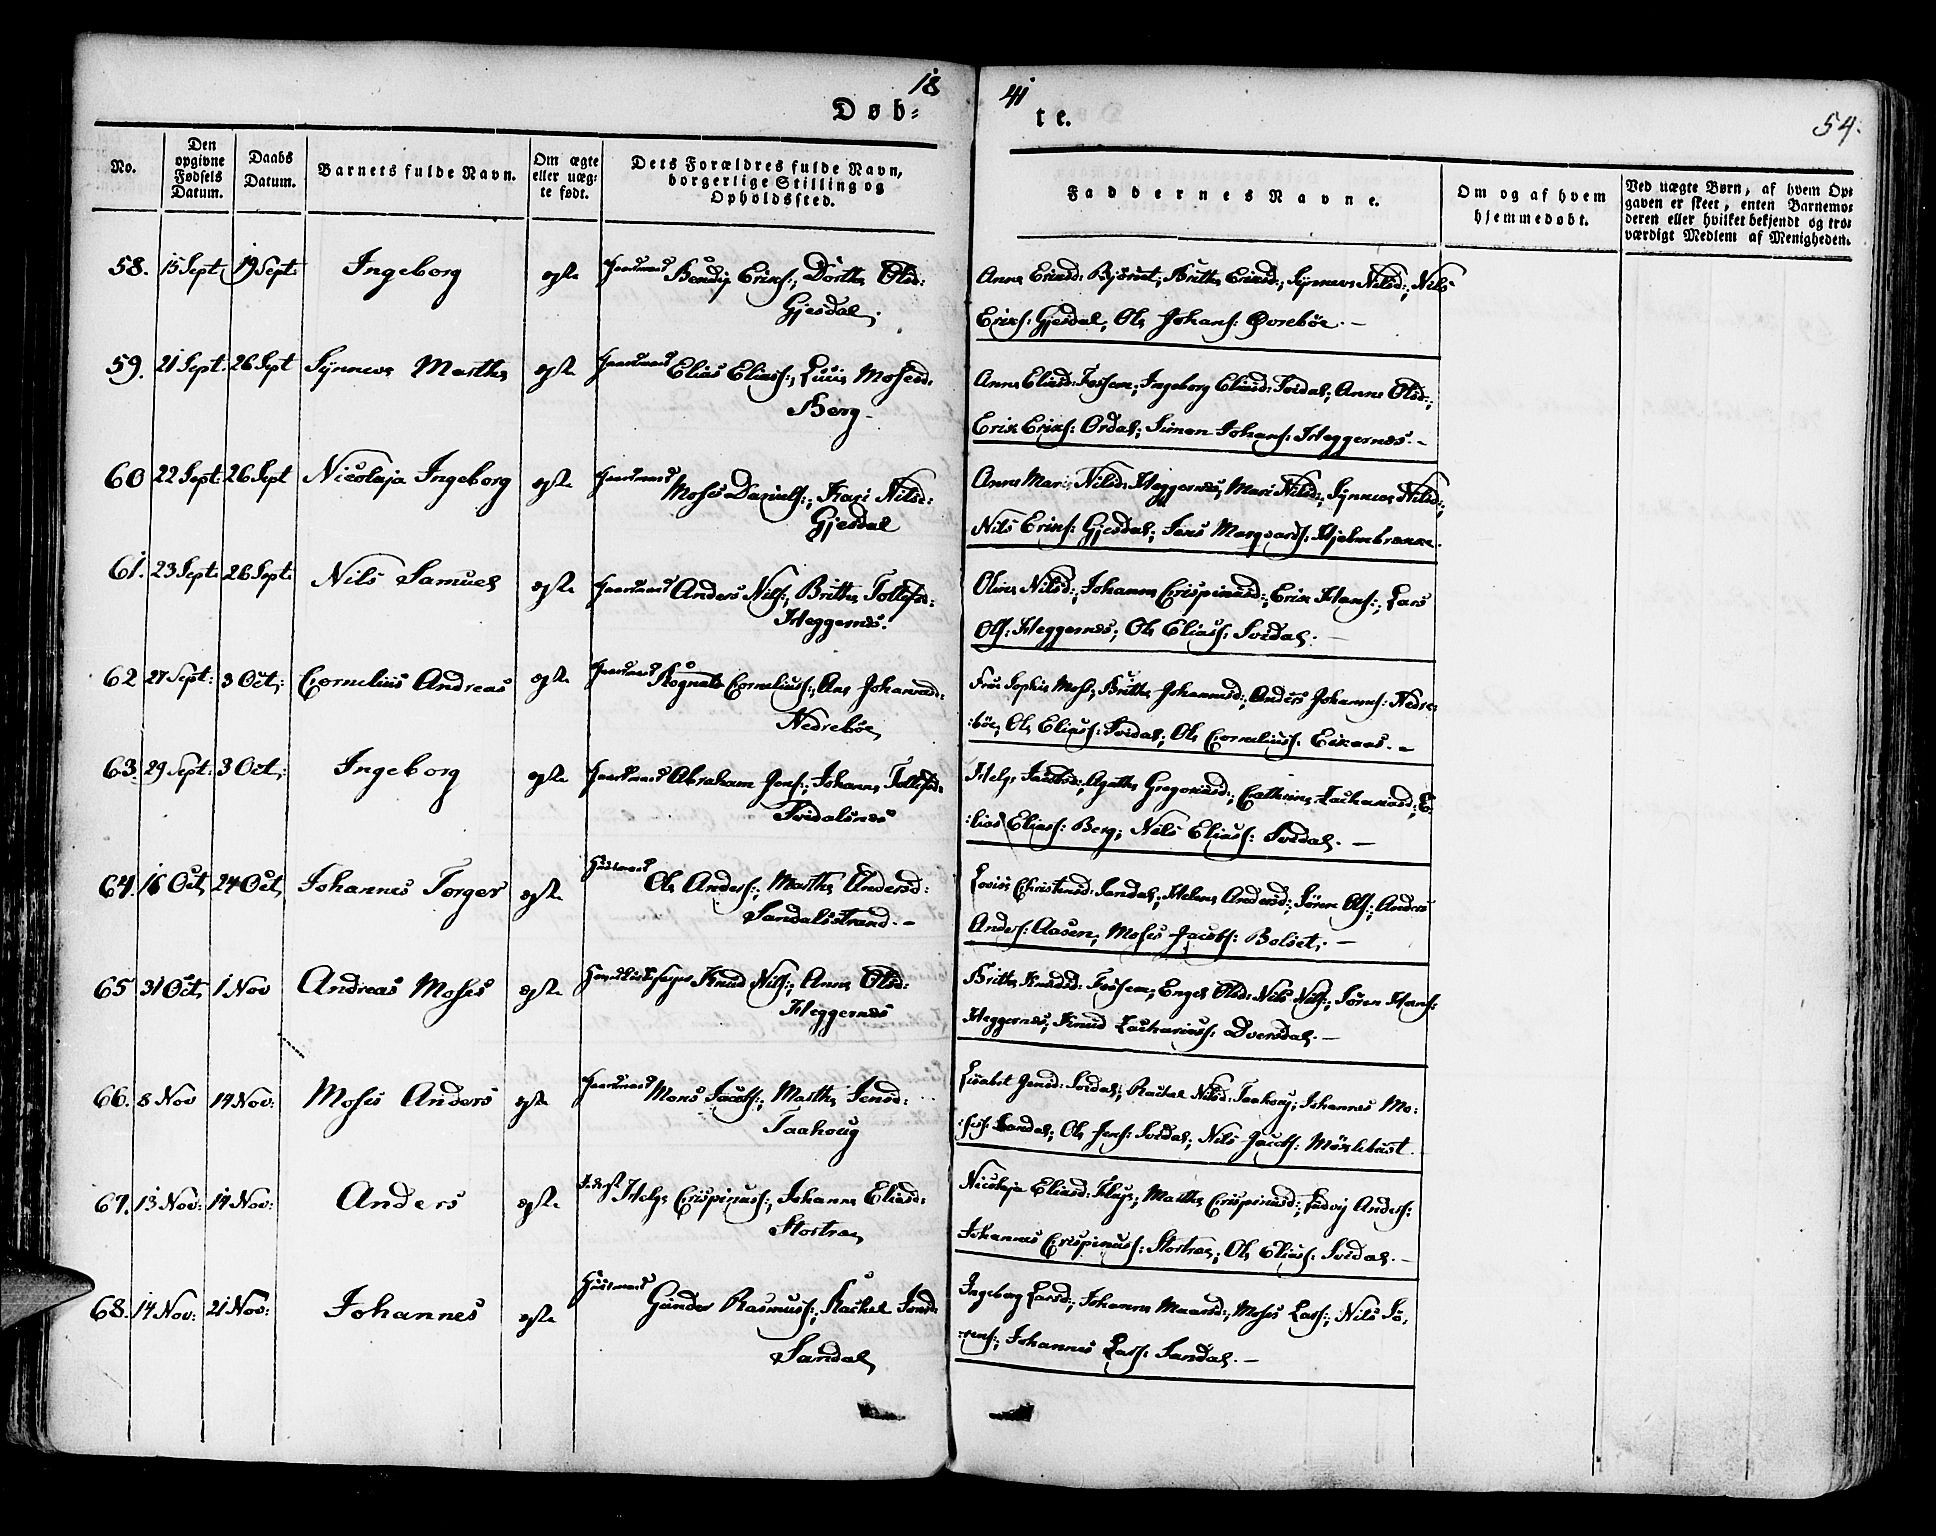 18
41
Døb-
te.
54.
No.
Den opgivne Fødsels Datum.
Daabs Datum.
Barnets fulde Navn.
Om ægte eller uægte født.
Dets Forældres fulde Navn, borgerlige Stilling og Opholdssted.
Faddernes Navne.
Om og af hvem hjemmedøbt.
Ved uægte Børn, af hvem Opgaven er skeet, enten Barnemoderen eller hvilket bekjendt og troværdigt Medlem af Menigheden.
58. 15 Sept: 19 Sept: Ingeborg egte Gaardmand Bendix Eriks:, Dorthe Olsd:
Gjesdal.
Anne Eriksd: Byrivet; Brithe Eriksd:, Synneve Nilsd:; Nils
Eriks: Gjesdal, Ole Johans: Øvrebøe. -
59. 21 Sept: 26 Sept Synneve Marthe egte Gaardmand Elias Elias:, Mosesd:
Berg -
Anne Eliasd: Fossem; Ingeborg Eliasd: Svidal; Anne Olsd:;
Erik Eriks: Ordal; Simon Johans: Heggernes. -
60 22 Sept: 26 Sept Nicolaja Ingeborg egte Gaardmand Moses Daniels:, Kari Nilsd:
Gjesdal
Anne Marie Nilsd: Heggernes, Mari Nilsd:, Synneve Nilsd:;
Nils Eriks: Gjesdal; Jens Marqvards: Hjelmbrække.
61. 23 Sept: 26 Sept: Nils Samuel egte Gaardmand Anders Nils:, Brithe Tollefsd:
Heggernes.
Oline Nilsd:, Johanne Crispinusd:, Erik Hans:, Lars
Ols: Heggernes; Ole Elias: Svidal. -
62 27 Sept: 3 Oct: Cornelius Andreas egte Gaardmand Rognald Cornelius:, Ane Johannesd:
Nedrebøe
Fru Sophie Moss, Brithe Johannesd:, Anders Johannes: Nedre-
:bøe, Ole Elias: Svidal; Ole Cornelius: Eikaas. -
63. 29 Sept: 3 Oct: Ingeborg egte Gaardmand Abraham Jens:, Johanne Tollefsd:
Svidalsnes
Helge Jacobsd:, Agathe Gregoriusd:, Cathrine Zachariasd:, E-
:lias Elias: Berg; Nils Elias: Svidal. -
64. 16 Oct, 24 Oct, Johannes Torger egte Huusmand Ole Anders:, Marthe Andersd:
Sandalsstrand. -
Lovise Christensd: Sandal; Helene Andersd:, Søren Ols:, Anders
Anders: Aasen, Moses Jacobs: Bolset. -
65 31 Oct, 1 Nov Andreas Moses egte Knud Nils:, Anne Olsd:
Heggernes
Brithe Knudsd: Fossem; Engel Olsd: Nils Nils:, Søren Hans:
Heggernes; Knud Zacharias: Dversdal. -
66. 8 Nov 14 Nov: Moses Anders egte Gaardmand Mons Jacobs:, Marthe Jensd:
Taahoug
Lisabet Jensd: Svidal; Rachel Nilsd: Taahoug; Johannes Mo-
:ses: Sandal; Ole Jens: Svidal; Nils Jacobs: Møklebust.
67. 13 Nov: 14 Nov: Anders egte Inderst Helge Crispinus:, Johanne Eliasd:
Stortræe
Nicolaja Eliasd: Kluge; Marthe Crispinusd:, Ludvig Anders:
Johannes Crispinus: Stortræe; Ole Elias: Svidal. -
68. 14 Nov: 21 Nov: Johannes egte Huusmand Gunder Rasmus:, Rachel Jonsd:
Sandal
Ingeborg Larsd:, Johanne Monsd:, Moses Lars:, Nils Sø-
:rens:, Johannes Lars: Sandal. -